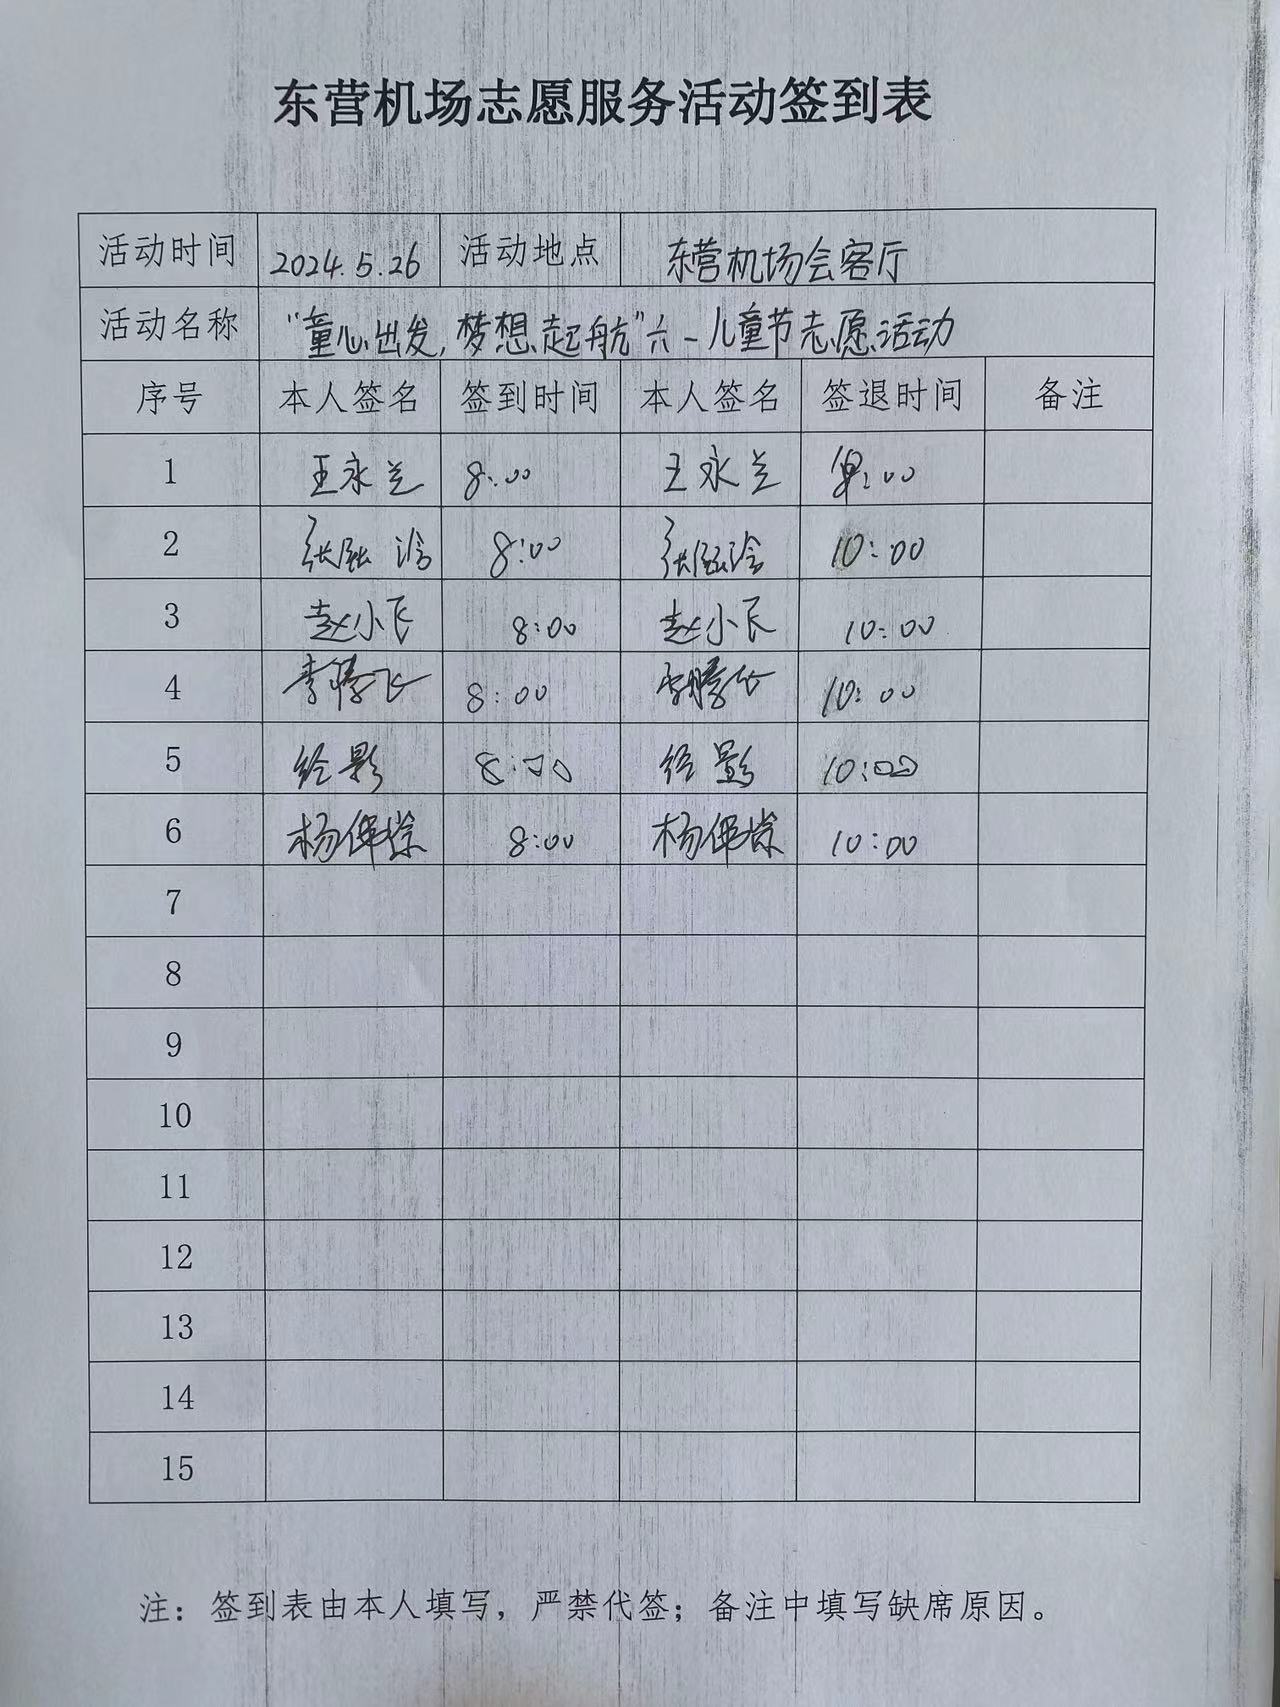 东营机场志愿服务活动签到表
活动时间 2024.5.26 活动地点 东营机场会客厅
活动名称 "童心出发,梦想起航"六一儿童节志愿活动
序号 本人签名 签到时间 本人签名 签退时间 备注
1 王永兰 8:00 王永兰 :00
2 张 8:00 张 10:00
3 赵小飞 8:00 赵小飞 10:00
4 李腾飞 8:00 李腾飞 10:00
5 经影 8:00 经影 10:00
6 杨伟 8:00 杨伟 10:00
7
8
9
10
11
12
13
14
15
注：签到表由本人填写，严禁代签；备注中填写缺席原因。